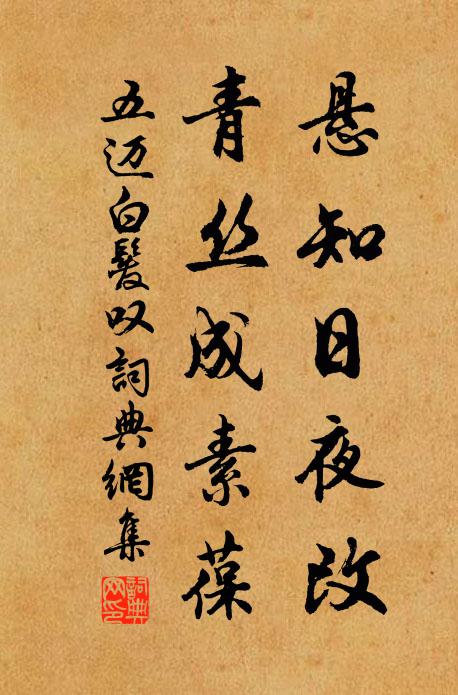 悬知日夜改
青丝成素葆
五迈白髮叹詞典網集
詞典网印